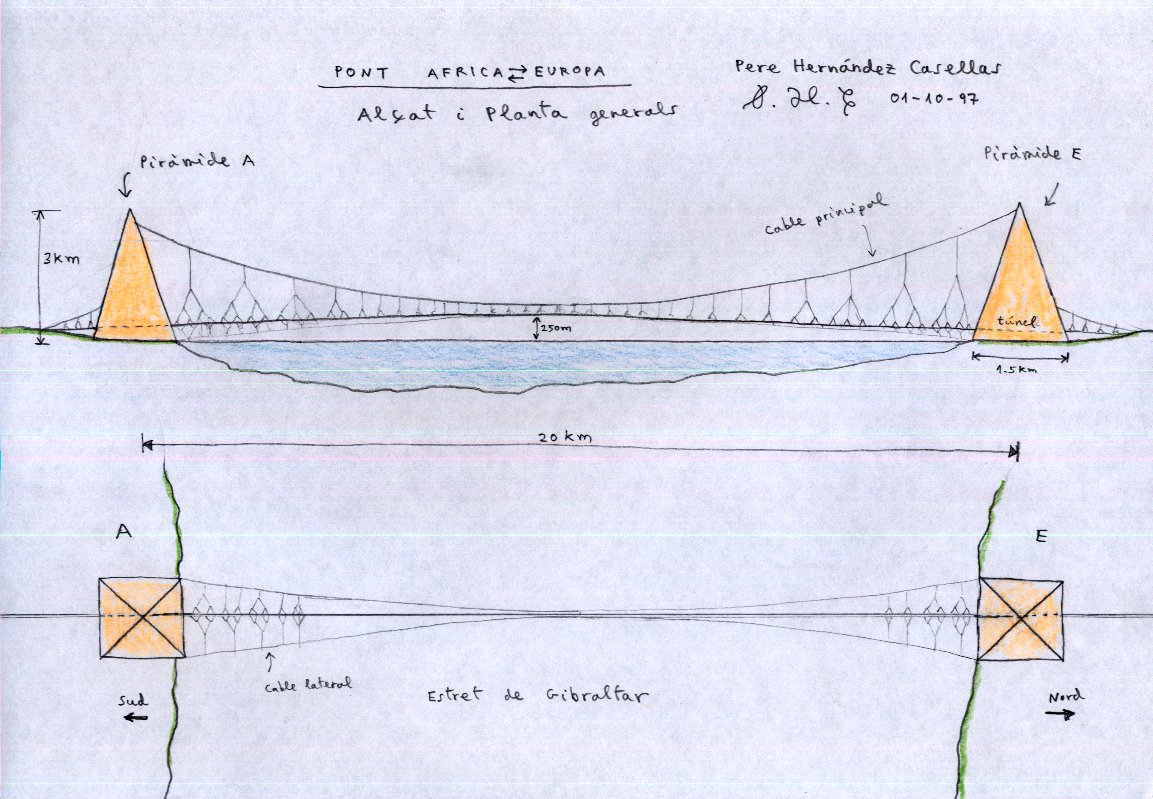 PONT AFRICA ⇄ EUROPA
Alçat i Planta generals
Pere Hernández Casellas
P. H. C 01-10-97
Piràmide A
Piràmide E
cable principal
3km
250m
túnel
1.5km
20 km
A
E
cable lateral
Estret de Gibraltar
Sud
Nord